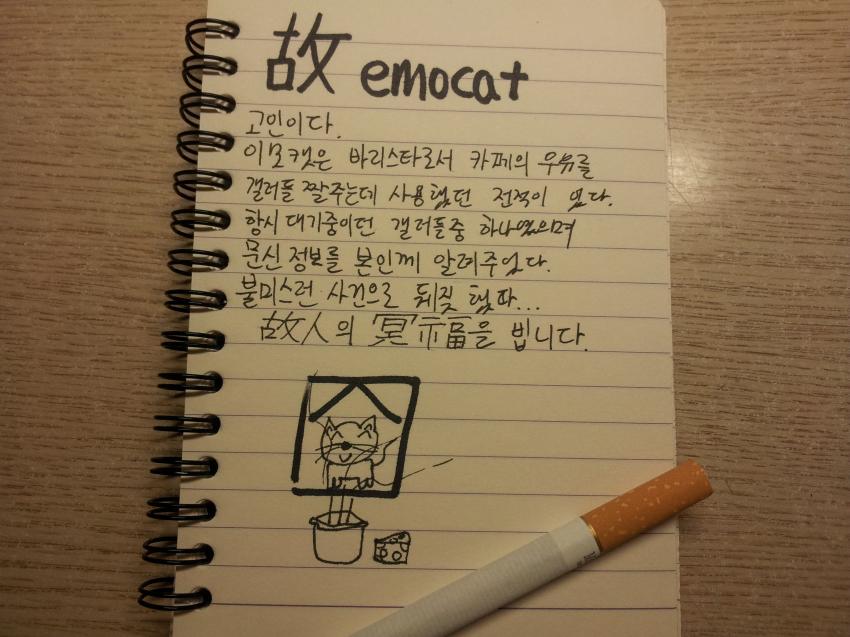 故 emocat
고인이다.
이모캣은 바리스타로서 카페의 우유를
갤러들 짤주는데 사용했던 전적이 있다.
항시 대기중이던 갤러들중 하나였으며
문신 정보를 본인께 알려주었다.
불미스런 사건으로 뒈짖 했따...
故人의 冥福을 빕니다.